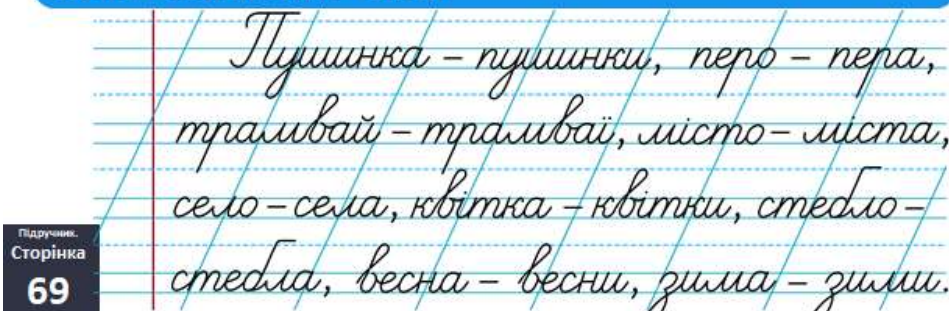 Пушинка – пушинки, перо – пера,
трамвай – трамваї, місто – міста,
село – села, квітка – квітки, стебло –
стебла, весна – весни, зима – зими.
Підручник.
Сторінка
69